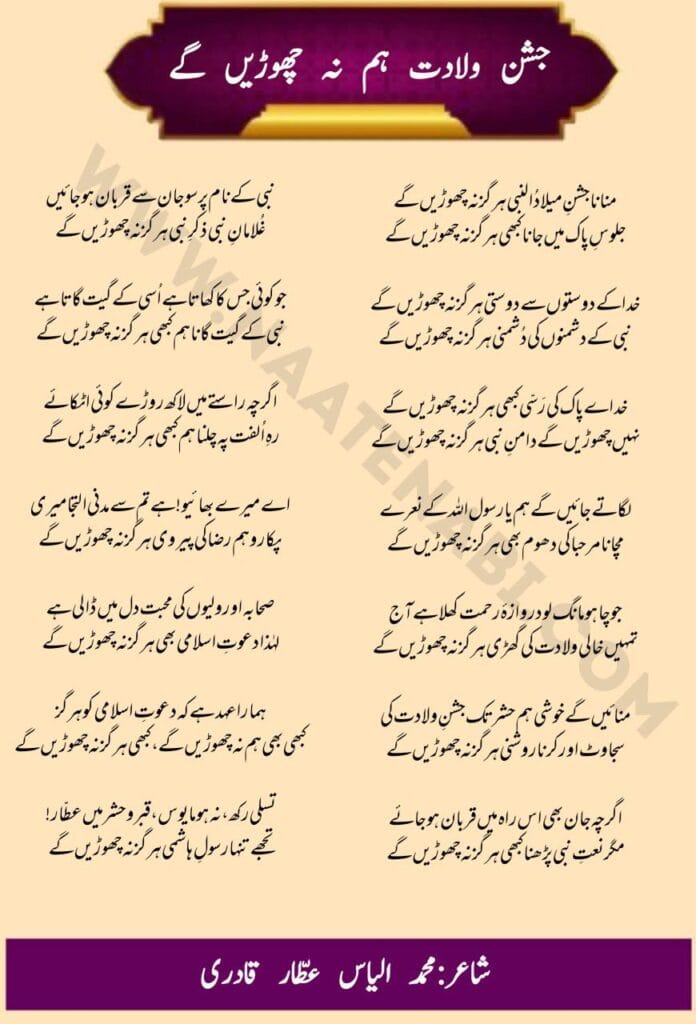 جشن ولادت ہم نہ چھوڑیں گے
منانا جشنِ میلادُ النبی ہرگز نہ چھوڑیں گے
جلوسِ پاک میں جانا کبھی ہرگز نہ چھوڑیں گے
خدا کے دوستوں سے دوستی ہرگز نہ چھوڑیں گے
نبی کے دشمنوں کی دُشمنی ہرگز نہ چھوڑیں گے
خداے پاک کی رَسّی کبھی ہرگز نہ چھوڑیں گے
نہیں چھوڑیں گے دامنِ نبی ہرگز نہ چھوڑیں گے
لگاتے جائیں گے ہم یارسول اللہ کے نعرے
مچانا مرحبا کی دھوم بھی ہرگز نہ چھوڑیں گے
جو چاہو مانگ لو دروازۂ رحمت کھلا ہے آج
تمہیں خالی ولادت کی گھڑی ہرگز نہ چھوڑیں گے
منائیں گے خوشی ہم حشر تک جشنِ ولادت کی
سجاوٹ اور کرنا روشنی ہرگز نہ چھوڑیں گے
اگرچہ جان بھی اس راہ میں قربان ہوجائے
مگر نعتِ نبی پڑھنا کبھی ہرگز نہ چھوڑیں گے
نبی کے نام پر سو جان سے قربان ہوجائیں
غُلامانِ نبی ذکرِ نبی ہرگز نہ چھوڑیں گے
جو کوئی جس کا کھاتا ہے اُسی کے گیت گاتا ہے
نبی کے گیت گانا ہم کبھی ہرگز نہ چھوڑیں گے
اگرچہ راستے میں لاکھ روڑے کوئی اٹکائے
رہِ اُلفت پہ چلنا ہم کبھی ہرگز نہ چھوڑیں گے
اے میرے بھائیو! ہے تم سے مدنی التجا میری
پکارو ہم رضا کی پیروی ہرگز نہ چھوڑیں گے
صحابہ اور ولیوں کی محبت دل میں ڈالی ہے
لہٰذا دعوتِ اسلامی بھی ہرگز نہ چھوڑیں گے
ہمارا عہد ہے کہ دعوتِ اسلامی کو ہرگز
کبھی بھی ہم نہ چھوڑیں گے، کبھی ہرگز نہ چھوڑیں گے
تسلی رکھ، نہ ہو مایوس، قبر و حشر میں عطّار!
تجھے تنہا رسولِ ہاشمی ہرگز نہ چھوڑیں گے
شاعر: محمد الیاس عطّار قادری
WWW.NAATENABI.COM